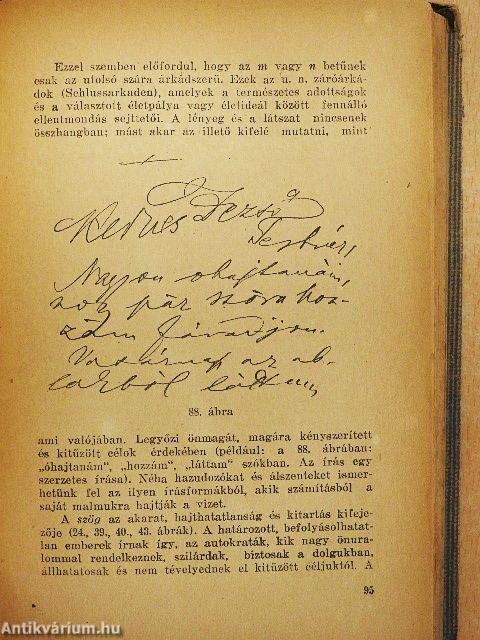 Ezzel szemben előfordul, hogy az m vagy n betűnek
csak az utolsó szára árkádszerű. Ezek az u. n. záróárká-
dok (Schlussarkaden), amelyek a természetes adottságok
és a választott életpálya vagy életideál között fennálló
ellentmondás sejttetői. A lényeg és a látszat nincsenek
összhangban; mást akar az illető kifelé mutatni, mint
Kedves Dezső
Testvér,
Nagyon ohajtanám,
hogy pár szóra hoz-
zám fáradjon.
Vasárnap az ab-
lakból láttam
88. ábra
ami valójában. Legyőzi önmagát, magára kényszerített
és kitűzött célok érdekében (például: a 88. ábrában:
„óhajtanám", „hozzám", „láttam" szókban. Az írás egy
szerzetes írása). Néha hazudozókat és álszenteket ismer-
hetünk fel az ilyen írásformákból, akik számításból a
saját malmukra hajtják a vizet.
A szög az akarat, hajthatatlanság és kitartás kifeje-
zője (24., 39., 40., 43. ábrák). A határozott, befolyásolhatat-
lan emberek írnak így, az autokraták, kik nagy önura-
lommal rendelkeznek, szilárdak, biztosak a dolgukban,
állhatatosak és nem tévelyednek el kitűzött céljuktól. A
95
Antikvárium.hu